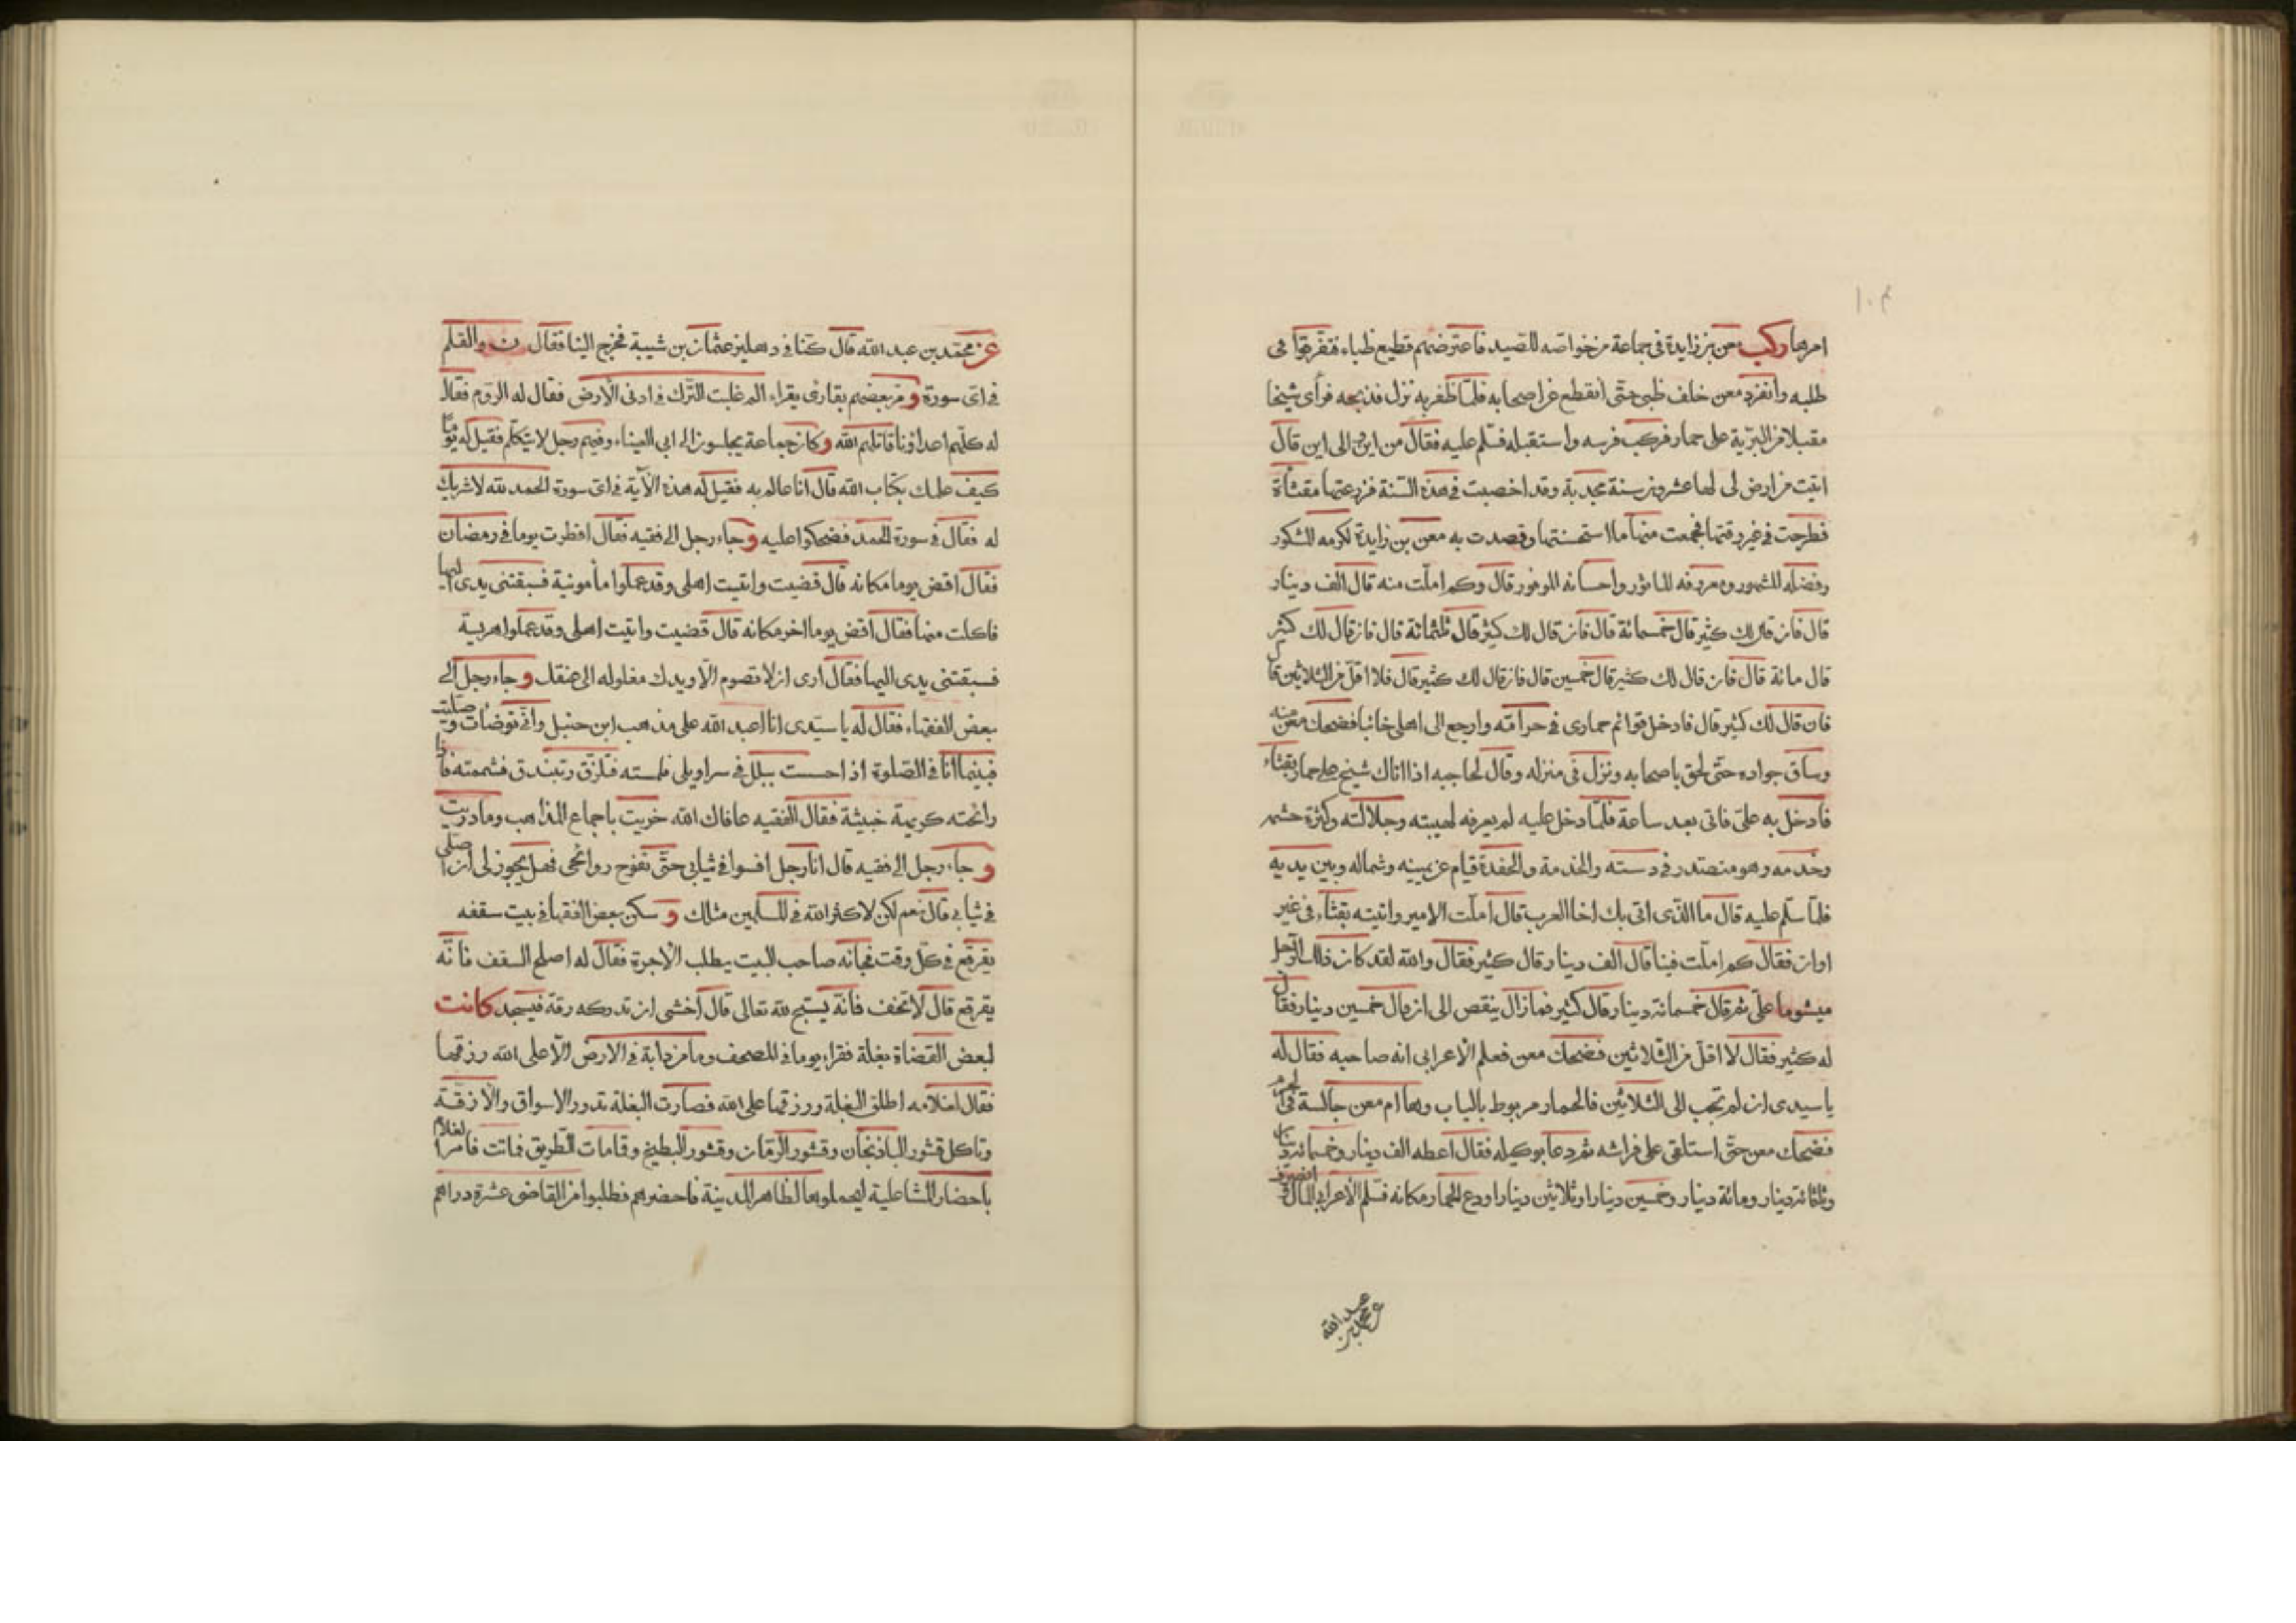 ١٠٣
امرها ركب معن بن زايدة فى جماعة من خواصه للصيد فاعترضهم قطيع ظباء فتفرقوا فى
طلبه وانفرد معن خلف ظبى حتى انقطع عن اصحابه فلما ظفر به نزل فذبحه فرأى شيخا
مقبلا من البرية على حمار فركب فرسه واستقبله فسلم عليه فقال من اين والى اين قال
اتيت من ارض لى لها عشرون سنة مجدبة وقد اخصبت فى هذه السنة فزرعتها مقثأة
فطرحت فى غير وقتها فجمعت منها ما استحسنتها وقصدت به معن بن زايدة لكرمه المشكور
وفضله المشهور ومعروفه الماثور واحسانه الموفور قال وكم املت منه قال الف دينار
قال فان قال لك كثير قال خمسمائة قال فان قال لك كثير قال ثلثمائة قال فان قال لك كثير
قال مائة قال فان قال لك كثير قال خمسين قال فان قال لك كثير قال فلا اقل من الثلاثين قال
فان قال لك كثير قال فادخل قوائم حمارى فى حرامه وارجع الى اهلى خائبا فضحك معن منه
وساق جواده حتى لحق باصحابه ونزل فى منزله وقال لحاجبه اذا اتاك شيخ على حمار بقثاء
فادخل به على فاتى بعد ساعة فلما دخل عليه لم يعرفه لهيبته وجلالته وكثرة حشمه
وخدمه وهو متصدر فى دسته والخدمة والحفدة قيام عن يمينه وشماله وبين يديه
فلما سلم عليه قال ما الذى اتى بك اخا العرب قال املت الامير واتيته بقثاء فى غير
اوان فقال كم املت فينا قال الف دينار قال كثير فقال والله لقد كان ذلك الرجل
ميشوما على ثم قال خمسمائة دينار قال كثير فما زال ينقص الى ان قال خمسين دينار فقال
له كثير فقال لا اقل من الثلاثين فضحك معن فعلم الاعرابى انه صاحبه فقال له
ياسيدى ان لم تجب الى الثلاثين فالحمار مربوط بالباب وها ام معن جالسة
فضحك معن حتى استلقى على فراشه ثم دعا بوكيله فقال اعطه الف دينار وخمسمائة دينار
وثلثمائة دينار ومائة دينار وخمسين دينارا وثلاثين دينارا ودع الحمار مكانه فسلم الاعرابى المال وانصرف
عن محمد بن عبد الله
عن محمد بن عبد الله قال كنا فى دهليز عثمان بن شيبة فخرج الينا فقال ن والقلم
فى اى سورة و مر بعضهم بقارئ يقراء الم غلبت الترك فى ادنى الارض فقال له الروم فقال
له كلهم اعداؤنا قاتلهم الله وكان جماعة يجلسون الى ابى العيناء وفيهم رجل لا يتكلم فقيل له يوما
كيف علمك بكتاب الله قال انا عالم به فقيل له هذه الآية فى اى سورة الحمد لله لا شريك
له فقال فى سورة الحمد فضحكوا عليه وجاء رجل الى فقيه فقال افطرت يوما فى رمضان
فقال اقض يوما مكانه قال قضيت واتيت اهلى وقد عملوا مأمونية فسبقتنى يدى اليها
فاكلت منها فقال اقض يوما اخر مكانه قال قضيت واتيت اهلى وقد عملوا هريسة
فسبقتنى يدى اليها فقال ارى ان لا تصوم الا ويدك مغلوله الى عنقك وجاء رجل الى
بعض الفقهاء فقال له ياسيدى انا اعبد الله على مذهب ابن حنبل وانى توضأت وصليت
فبينما انا فى الصلوة اذ احسست ببلل فى سراويلى فلمسته فتلزق وتبندق فشممته فاذا
رائحته كريهة خبيثة فقال الفقيه عافاك الله خريت باجماع المذاهب وما دريت
و جاء رجل الى فقيه قال انا رجل افسوا فى ثيابى حتى تفوح روائحى فهل يجوز لى ان اصلى
فى ثيابى قال نعم لكن لا كثر الله فى المسلمين مثلك و سكن بعض الفقها فى بيت سقفه
يقرقع فى كل وقت فجائه صاحب البيت يطلب الاجرة فقال له اصلح السقف فانه
يقرقع قال لا تخف فانه يسبح لله تعالى قال اخشى ان تدركه رقة فيسجد كانت
لبعض القضاة بغلة فقراء يوما فى المصحف وما من دابة فى الارض الا على الله رزقها
فقال لغلامه اطلق البغلة ورزقها على الله فصارت البغلة تدور الاسواق والازقة
وتاكل قشور الباذنجان وقشور الرمان وقشور البطيخ وقامات الطريق فماتت فامر الغلام
باحضار المشاعلية ليحملوها لظاهر المدينة فاحضرهم فطلبوا من القاضى عشرة دراهم